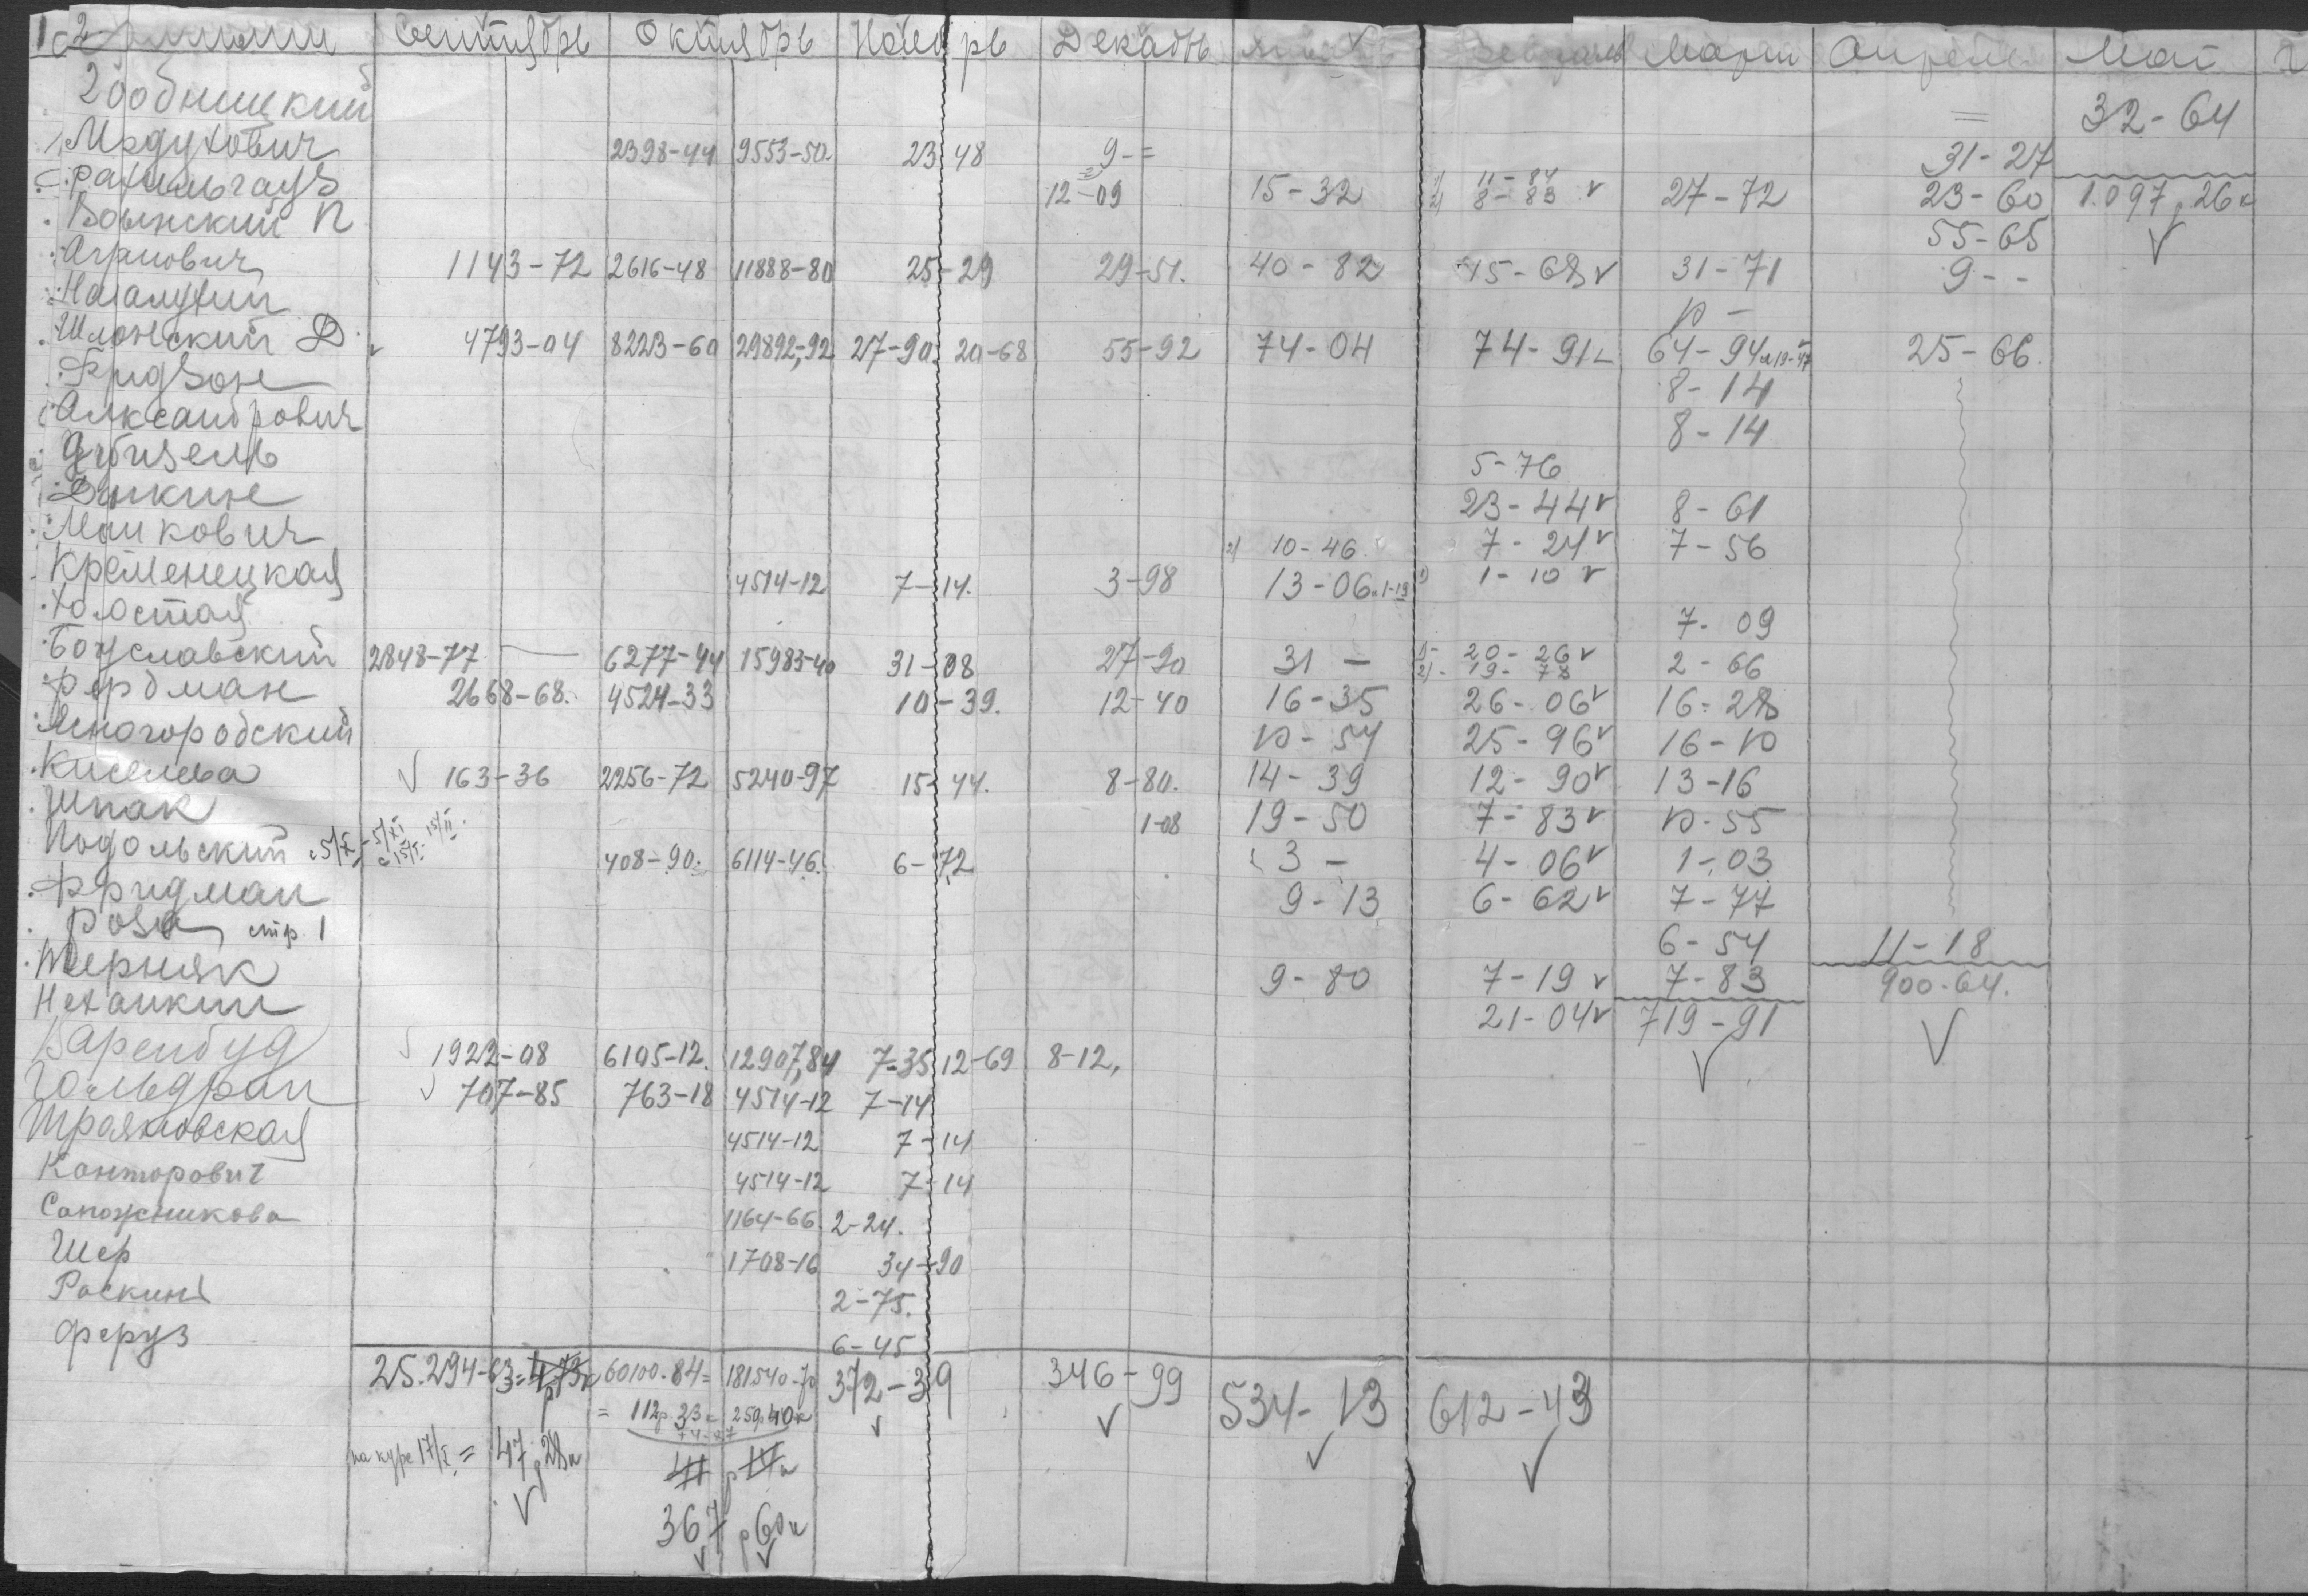 Сентябрь Октябрь Ноябрь Декабрь Февраль Март Апрель Май
32-64
Медухович 2398-44 9553-50 23-48 9-= 31-27
Рахильгауз 12-09 15-32 1) 11-84 2) 8-83 v 27-72 23-60 1.097 р 26 к
Волынский П 55-65
Агранович 1143-72 2616-48 11888-80 25-29 29-51. 40-82 15-68 v 31-71 9--
10 -
Шлонский Д 4793-04 8223-60 29892,92 27-90 20-68 55-92 74-04 74-91 64-94 25-66.
Гридзон 8-14
Александрович 8-14
5-76
Динкин 23-44 v 8-61
Манкович 2) 10-46 7-24 v 7-56
Кременецкая 4514-12 7-14. 3-98 13-06 1-10 v
Холостая 7-09
Богуславский 2848-77 — 6277-44 15983-40 31-08 27-90 31 - 1) 20-26 v 2) 19-78 2-66
Фердман 2668-68. 4524-33 10-39. 12-40 16-35 26-06 v 16-28
Ясногородский 10-54 25-96 v 16-10
Киселева 163-36 2256-72 5240-97 15-44. 8-80. 14-39 12-90 v 13-16
Шпак 1-08 19-50 7-83 v 10-55
Подольский 408-90. 6114-46. 6-72 3 - 4-06 v 1-03
Фридман 9-13 6-62 v 7-77
Роза стр. 1 6-54 11-18
Терняк 9-80 7-19 v 7-83 900-64.
Нехамкин 21-04 v 719-91
Варенбуд 1922-08 6105-12. 12907,84 7-35 12-69 8-12,
707-85 763-18 4514-12 7-14
4514-12 7-14
Канторович 4514-12 7-14
Сапожникова 1164-66 2-24.
Шер 1708-16 34-90
Раскин 2-75.
Феруз 6-45
25.294-63= 60100-84= 181540-70 372-39 346-99 534-13 612-43
= 112р. 33к 259р40к
по курс 17/X = 47 р 28к
367 р 60 к